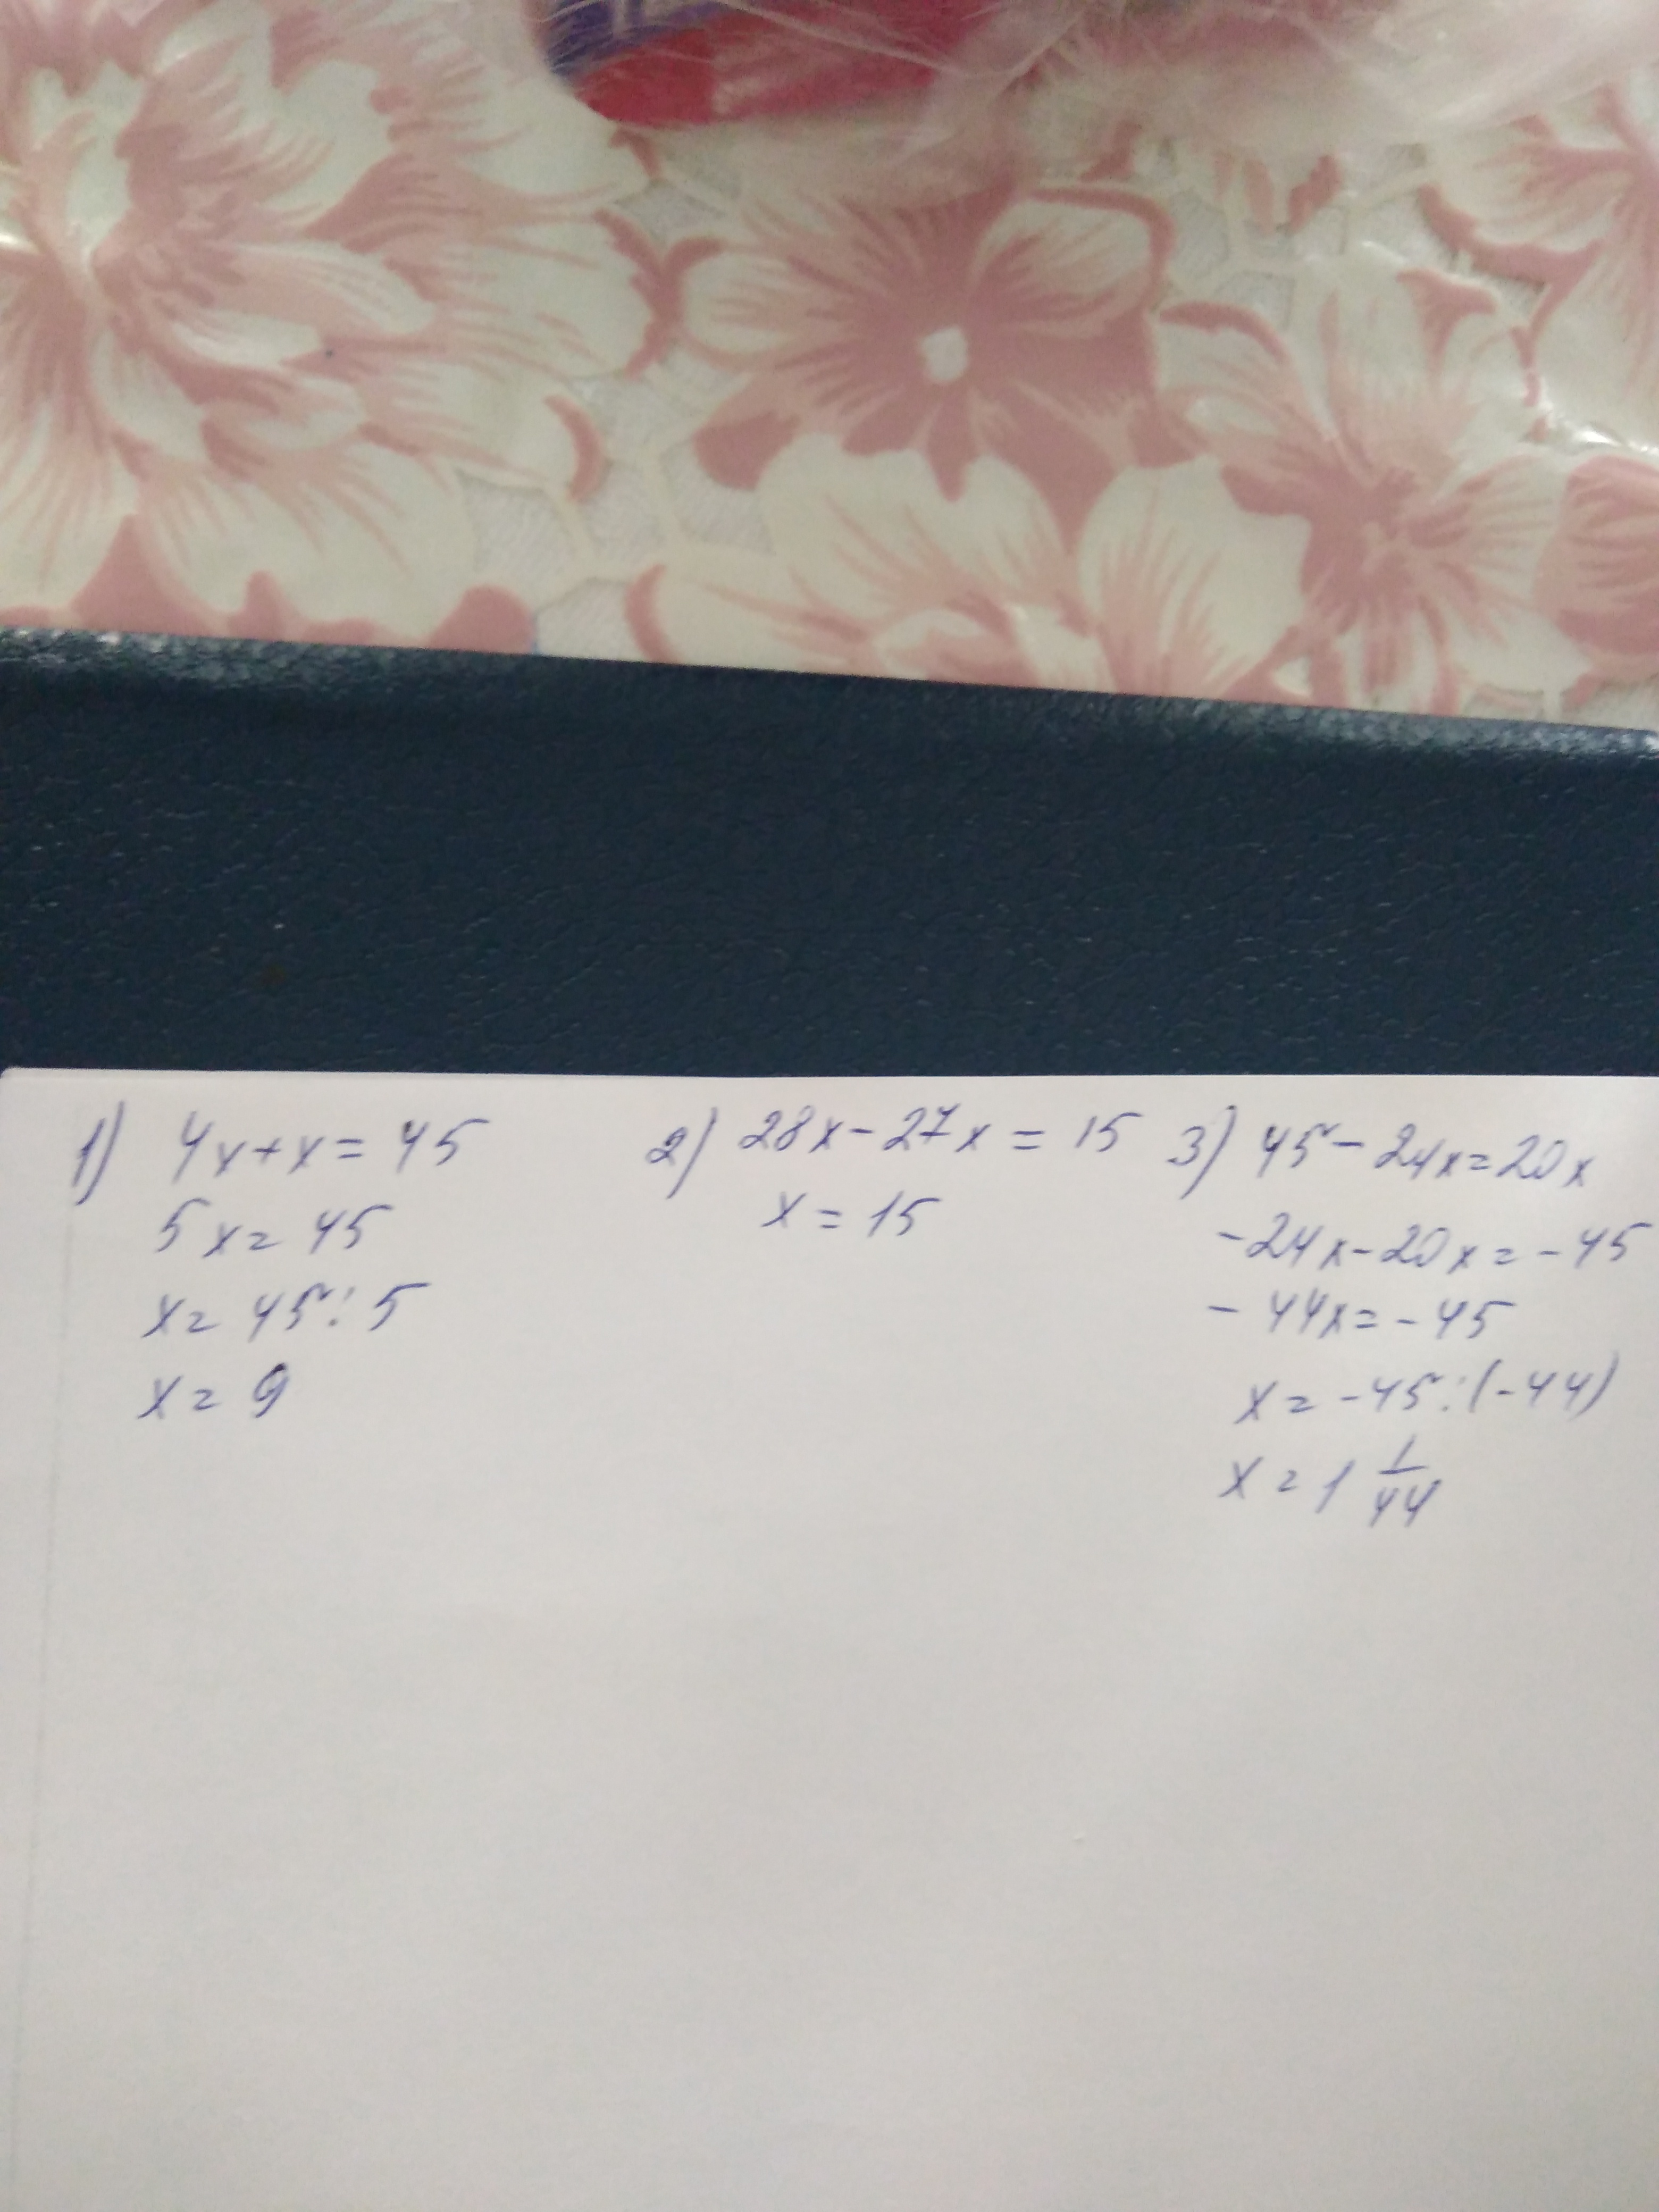 1) 4x+x=45
5x=45
x=45:5
x=9
2) 28x-27x=15
x=15
3) 45-24x=20x
-24x-20x=-45
-44x=-45
x=-45:(-44)
x=1 1/44